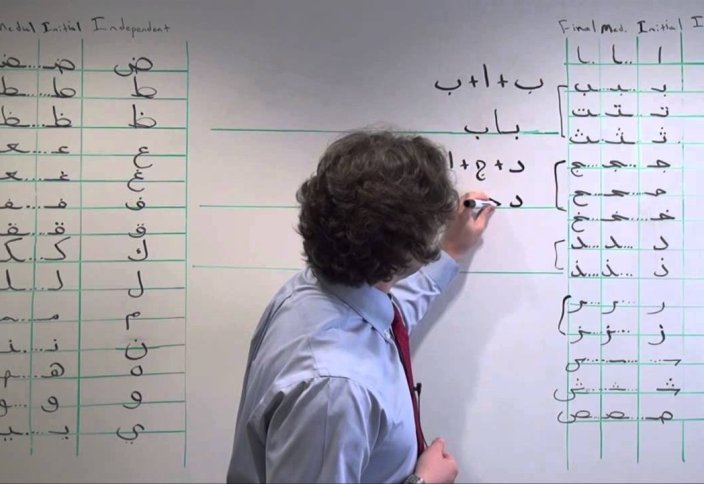 Medial Initial Independent
ـضـ ضـ ض
ـطـ طـ ط
ـظـ ظـ ظ
ـعـ عـ ع
ـغـ غـ غ
ـفـ فـ ف
ـقـ قـ ق
ـكـ كـ ك
ـلـ لـ ل
ـمـ مـ م
ـنـ نـ ن
ـهـ هـ ه
ـو و و
ـيـ يـ ي
ب + ا + ب
باب
د + ج + ا
د
Final Med. Initial
ـا ـا ا
ـب ـبـ بـ
ـت ـتـ تـ
ـث ـثـ ثـ
ـج ـجـ جـ
ـح ـحـ حـ
ـخ ـخـ خـ
ـد ـد د
ـذ ـذ ذ
ـر ـر ر
ـز ـز ز
ـس ـسـ سـ
ـش ـشـ شـ
ـص ـصـ صـ